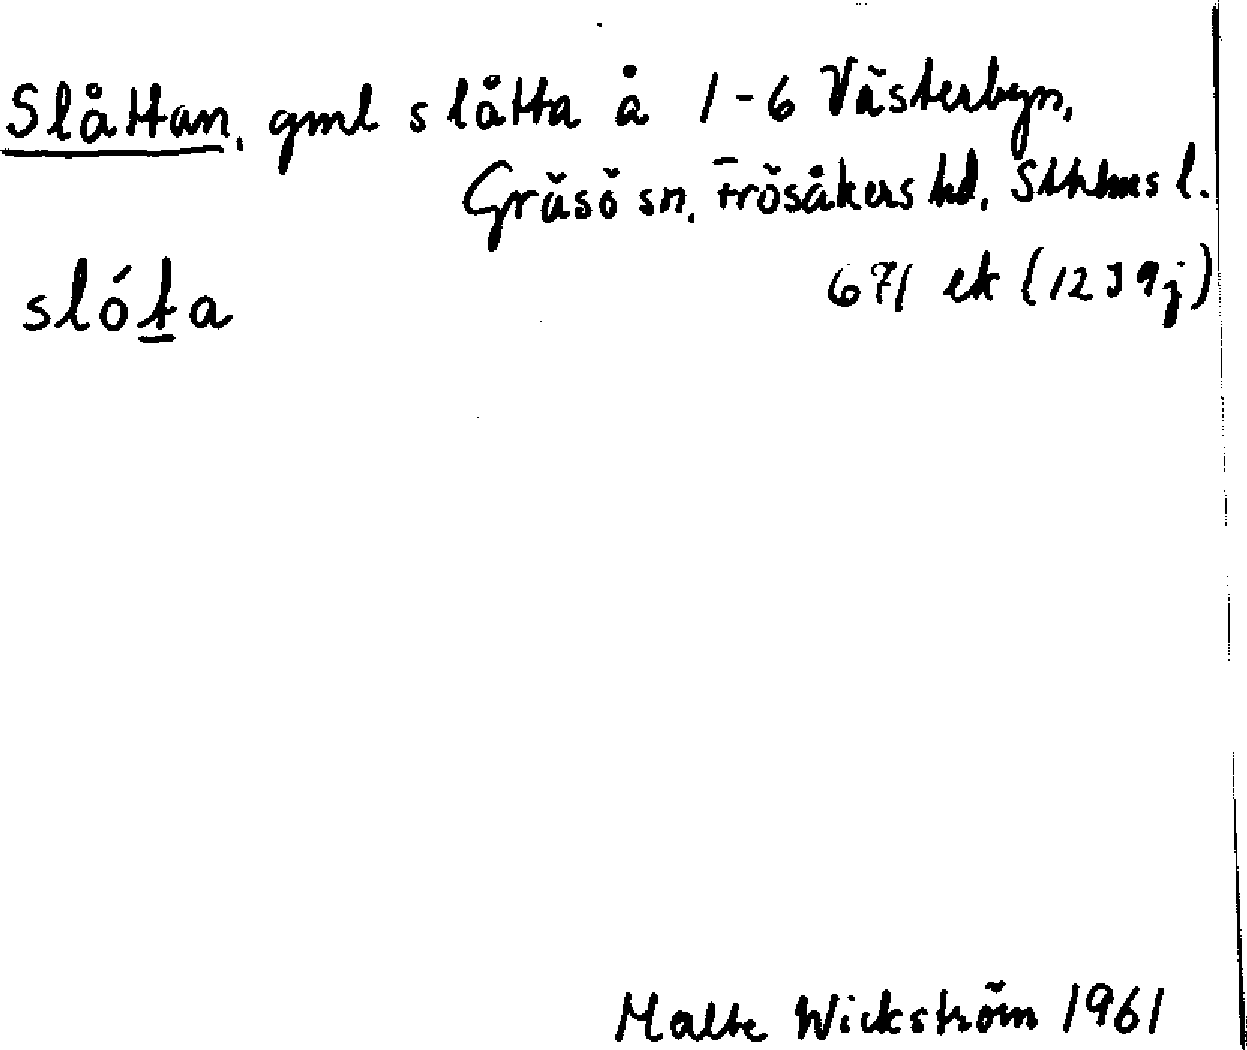 Slåttan, gml slåtta å 1-6 Västerbyn,
Gräsö sn, Frösåkers hd, Sthlms l.
slóta
671 ek (12 J 9 j)
Malte Wickström 1961